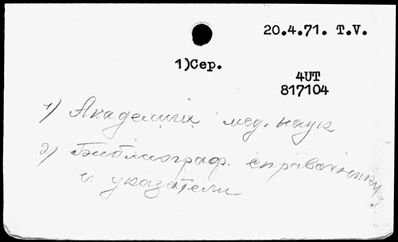 20.4.71. T.V.
1)Сер.
4UT
817104
1) Академии мед. наук
2) Библиограф. справочники
и указатели